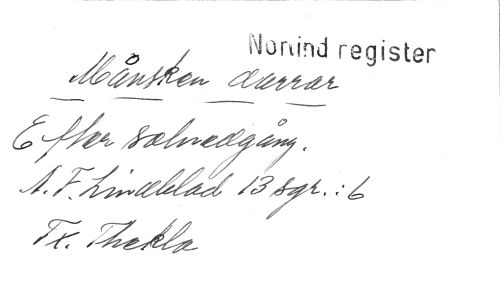 Norlind register
Månsken darrar
Efter solnedgång.
A. F. Lindblad 13 sgr. : 6
Tx. Thekla